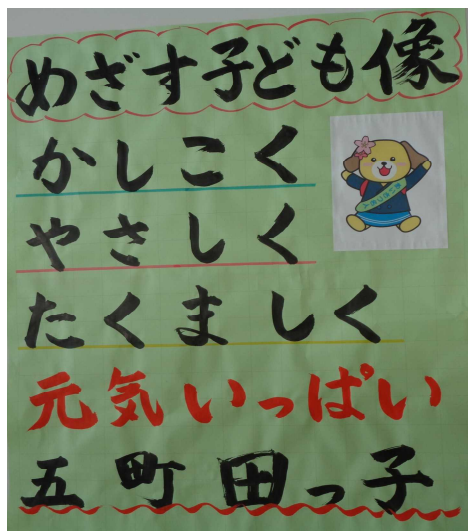 めざす子ども像
かしこく
やさしく
たくましく
元気いっぱい
五町田っ子